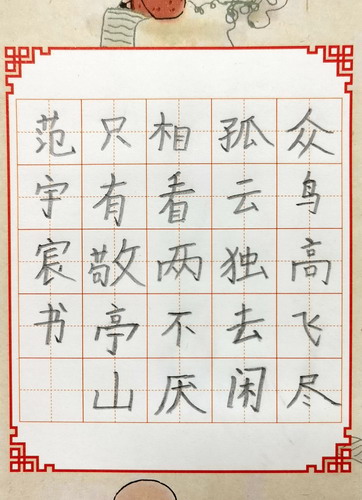 众鸟高飞尽
孤云独去闲
相看两不厌
只有敬亭山
范宇宸书